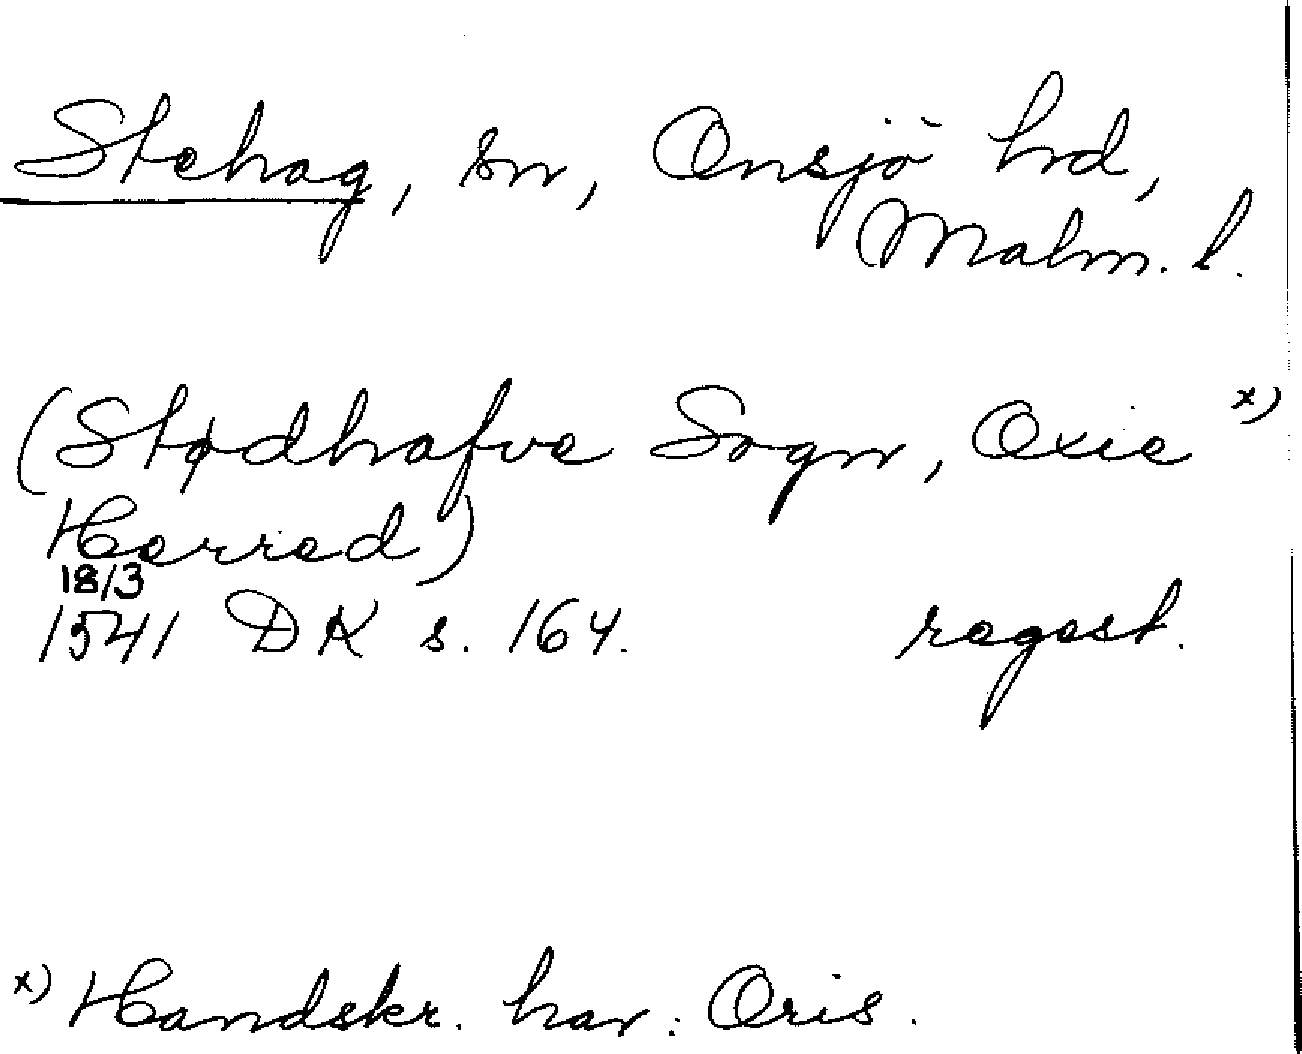 Stehag, sn, Onsjö hrd,
Malm. l.
(Stødhafve Sogn, Oxie x)
Herred)
18/3
1541 DK s. 164. regest.
x) Handskr. har: Oris.